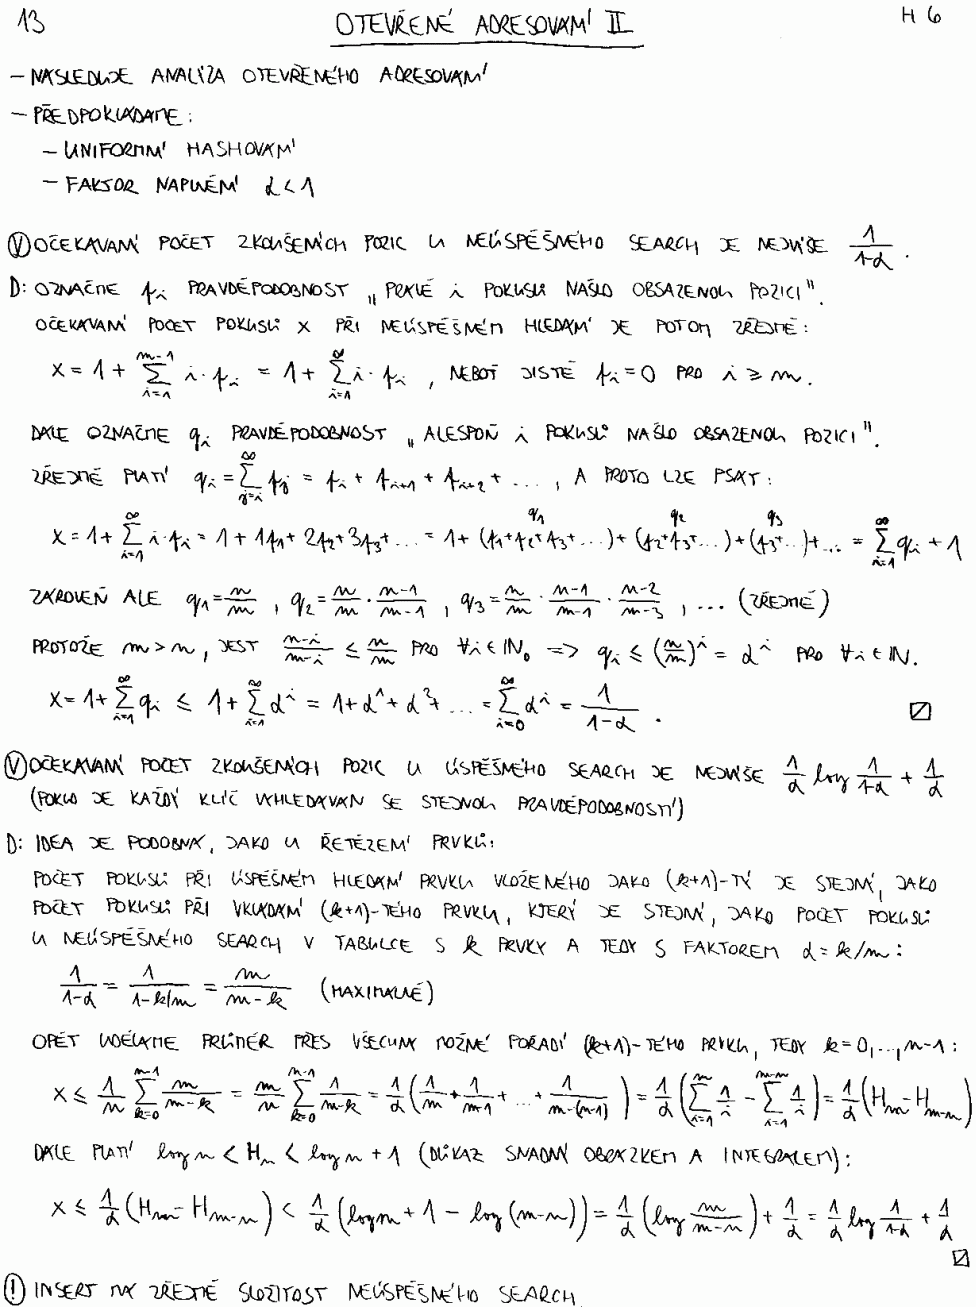 13 OTEVŘENÉ ADRESOVÁNÍ II H 6
– NÁSLEDUJE ANALÝZA OTEVŘENÉHO ADRESOVÁNÍ
– PŘEDPOKLÁDÁME:
– UNIFORMNÍ HASHOVÁNÍ
– FAKTOR NAPLNĚNÍ α < 1
Ⓥ OČEKÁVANÝ POČET ZKOUŠENÝCH POZIC U NEÚSPĚŠNÉHO SEARCH JE NEJVÝŠE 1/(1-α).
D: OZNAČME p_i PRAVDĚPODOBNOST „PRÁVĚ i POKUSŮ NAŠLO OBSAZENOU POZICI".
OČEKÁVANÝ POČET POKUSŮ X PŘI NEÚSPĚŠNÉM HLEDÁNÍ JE POTOM ZŘEJMĚ:
X = 1 + ∑_{i=1}^{m-1} i·p_i = 1 + ∑_{i=1}^{∞} i·p_i , NEBOŤ JISTĚ p_i = 0 PRO i ≥ m.
DÁLE OZNAČME q_i PRAVDĚPODOBNOST „ALESPOŇ i POKUSŮ NAŠLO OBSAZENOU POZICI".
ZŘEJMĚ PLATÍ q_i = ∑_{j=i}^{∞} p_j = p_i + p_{i+1} + p_{i+2} + ... , A PROTO LZE PSÁT:
X = 1 + ∑_{i=1}^{∞} i·p_i = 1 + 1p_1 + 2p_2 + 3p_3 + ... = 1 + (p_1+p_2+p_3+...) + (p_2+p_3+...) + (p_3+...) + ... = ∑_{i=1}^{∞} q_i + 1
q_1 q_2 q_3
ZÁROVEŇ ALE q_1 = n/m , q_2 = n/m · (n-1)/(m-1) , q_3 = n/m · (n-1)/(m-1) · (n-2)/(m-3) , ... (ZŘEJMÉ)
PROTOŽE m > n, JEST (n-i)/(m-i) ≤ n/m PRO ∀i ∈ ℕ_0 => q_i ≤ (n/m)^i = α^i PRO ∀i ∈ ℕ.
X = 1 + ∑_{i=1}^{∞} q_i ≤ 1 + ∑_{i=1}^{∞} α^i = 1 + α^1 + α^2 + ... = ∑_{i=0}^{∞} α^i = 1/(1-α) .
Ⓥ OČEKÁVANÝ POČET ZKOUŠENÝCH POZIC U ÚSPĚŠNÉHO SEARCH JE NEJVÝŠE 1/α log 1/(1-α) + 1/α
(POKUD JE KAŽDÝ KLÍČ VYHLEDÁVÁN SE STEJNOU PRAVDĚPODOBNOSTÍ)
D: IDEA JE PODOBNÁ, JAKO U ŘETĚZENÍ PRVKŮ:
POČET POKUSŮ PŘI ÚSPĚŠNÉM HLEDÁNÍ PRVKU VLOŽENÉHO JAKO (k+1)-TÝ JE STEJNÝ, JAKO
POČET POKUSŮ PŘI VKLÁDÁNÍ (k+1)-TÉHO PRVKU, KTERÝ JE STEJNÝ, JAKO POČET POKUSŮ
U NEÚSPĚŠNÉHO SEARCH V TABULCE S k PRVKY A TEDY S FAKTOREM α = k/m :
1/(1-α) = 1/(1-k/m) = m/(m-k) (MAXIMÁLNĚ)
OPĚT UDĚLÁME PRŮMĚR PŘES VŠECHNY MOŽNÉ POŘADÍ (k+1)-TÉHO PRVKU, TEDY k=0,...,n-1 :
X ≤ 1/n ∑_{k=0}^{n-1} m/(m-k) = m/n ∑_{k=0}^{n-1} 1/(m-k) = 1/α (1/m + 1/(m-1) + ... + 1/(m-(n-1))) = 1/α (∑_{i=1}^{m} 1/i - ∑_{i=1}^{m-n} 1/i) = 1/α (H_m - H_{m-n})
DÁLE PLATÍ log n < H_n < log n + 1 (DŮKAZ SNADNÝ OBRÁZKEM A INTEGRÁLEM):
X ≤ 1/α (H_m - H_{m-n}) < 1/α (log m + 1 - log (m-n)) = 1/α (log m/(m-n)) + 1/α = 1/α log 1/(1-α) + 1/α
(!) INSERT MÁ ZŘEJMĚ SLOŽITOST NEÚSPĚŠNÉHO SEARCH.